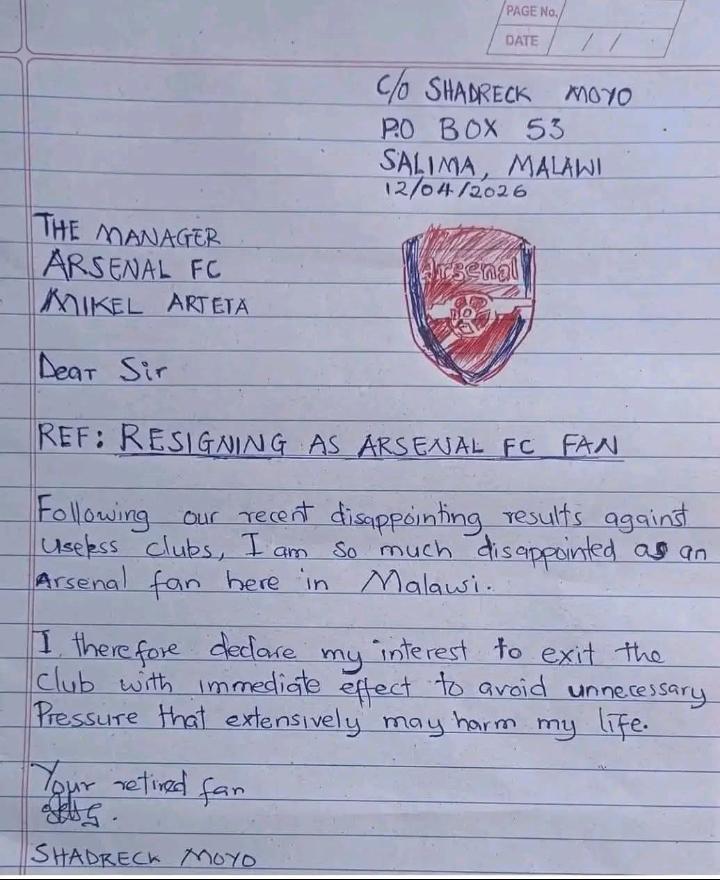 PAGE No.
DATE / /
C/O SHADRECK MOYO
P.O BOX 53
SALIMA, MALAWI
12/04/2026
THE MANAGER
ARSENAL FC
MIKEL ARTETA
Arsenal
Dear Sir
REF: RESIGNING AS ARSENAL FC FAN
Following our recent disappointing results against
Useless clubs, I am so much disappointed as an
Arsenal fan here in Malawi.
I therefore declare my interest to exit the
Club with immediate effect to avoid unnecessary
Pressure that extensively may harm my life.
Your retired fan
SHADRECK MOYO